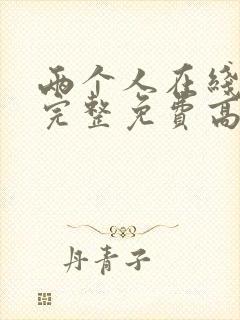 两个人在线
完整免费高
丹青子